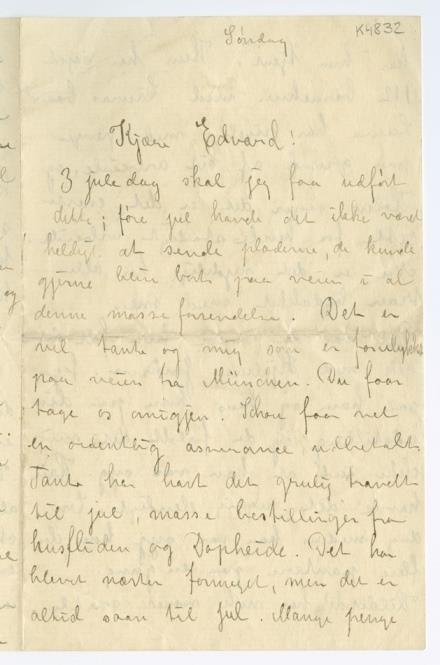 K4832
Søndag
Kjære Edvard!
3 juledag skal jeg faa udført
dette; före jul havde det ikke været
heldigt at sende pladerne, de kunde
gjerne blevet borte paa veien i al
denne masseforsendelse. Det er
vel tante og mig som er forulykket
paa veien fra München. Du faar
tage os omigjen. Schou faar vel
en ordentlig assurance udbetalt.
Tante har havt det grulig travelt
til jul, masse bestillinger fra
husfliden og Dopheide. Det har
blevet næsten formeget, men det er
altid saan til jul. Mange penge